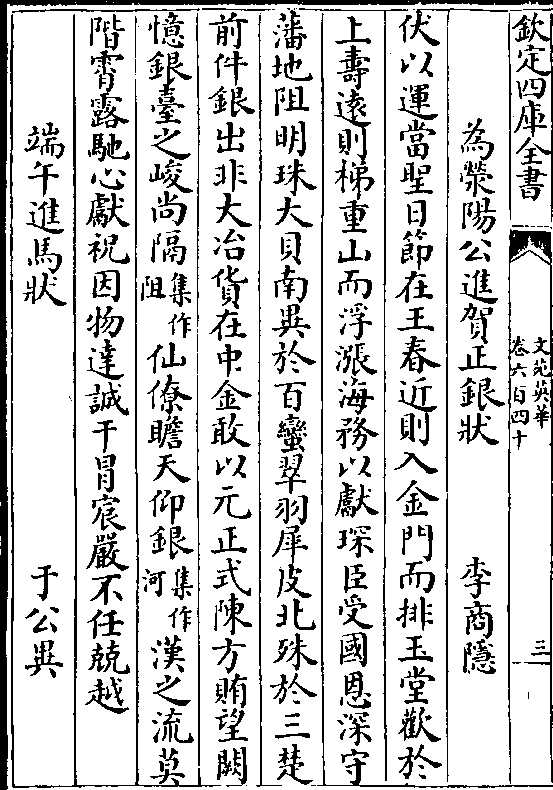 欽定四庫全書
文苑英華
卷六百四十
三
為滎陽公進賀正銀狀 李商隱
伏以運當聖日節在王春近則入金門而排玉堂歡於
上壽遠則梯重山而浮漲海務以獻琛臣受國恩深守
藩地阻明珠大貝南異於百蠻翠羽犀皮北殊於三楚
前件銀出非大冶貨在中金敢以元正式陳方賄望闕
憶銀臺之峻尚隔集作阻仙僚瞻天仰銀集作河漢之流莫
階霄露馳心獻祝因物達誠干冒宸嚴不任兢越
端午進馬狀 于公異